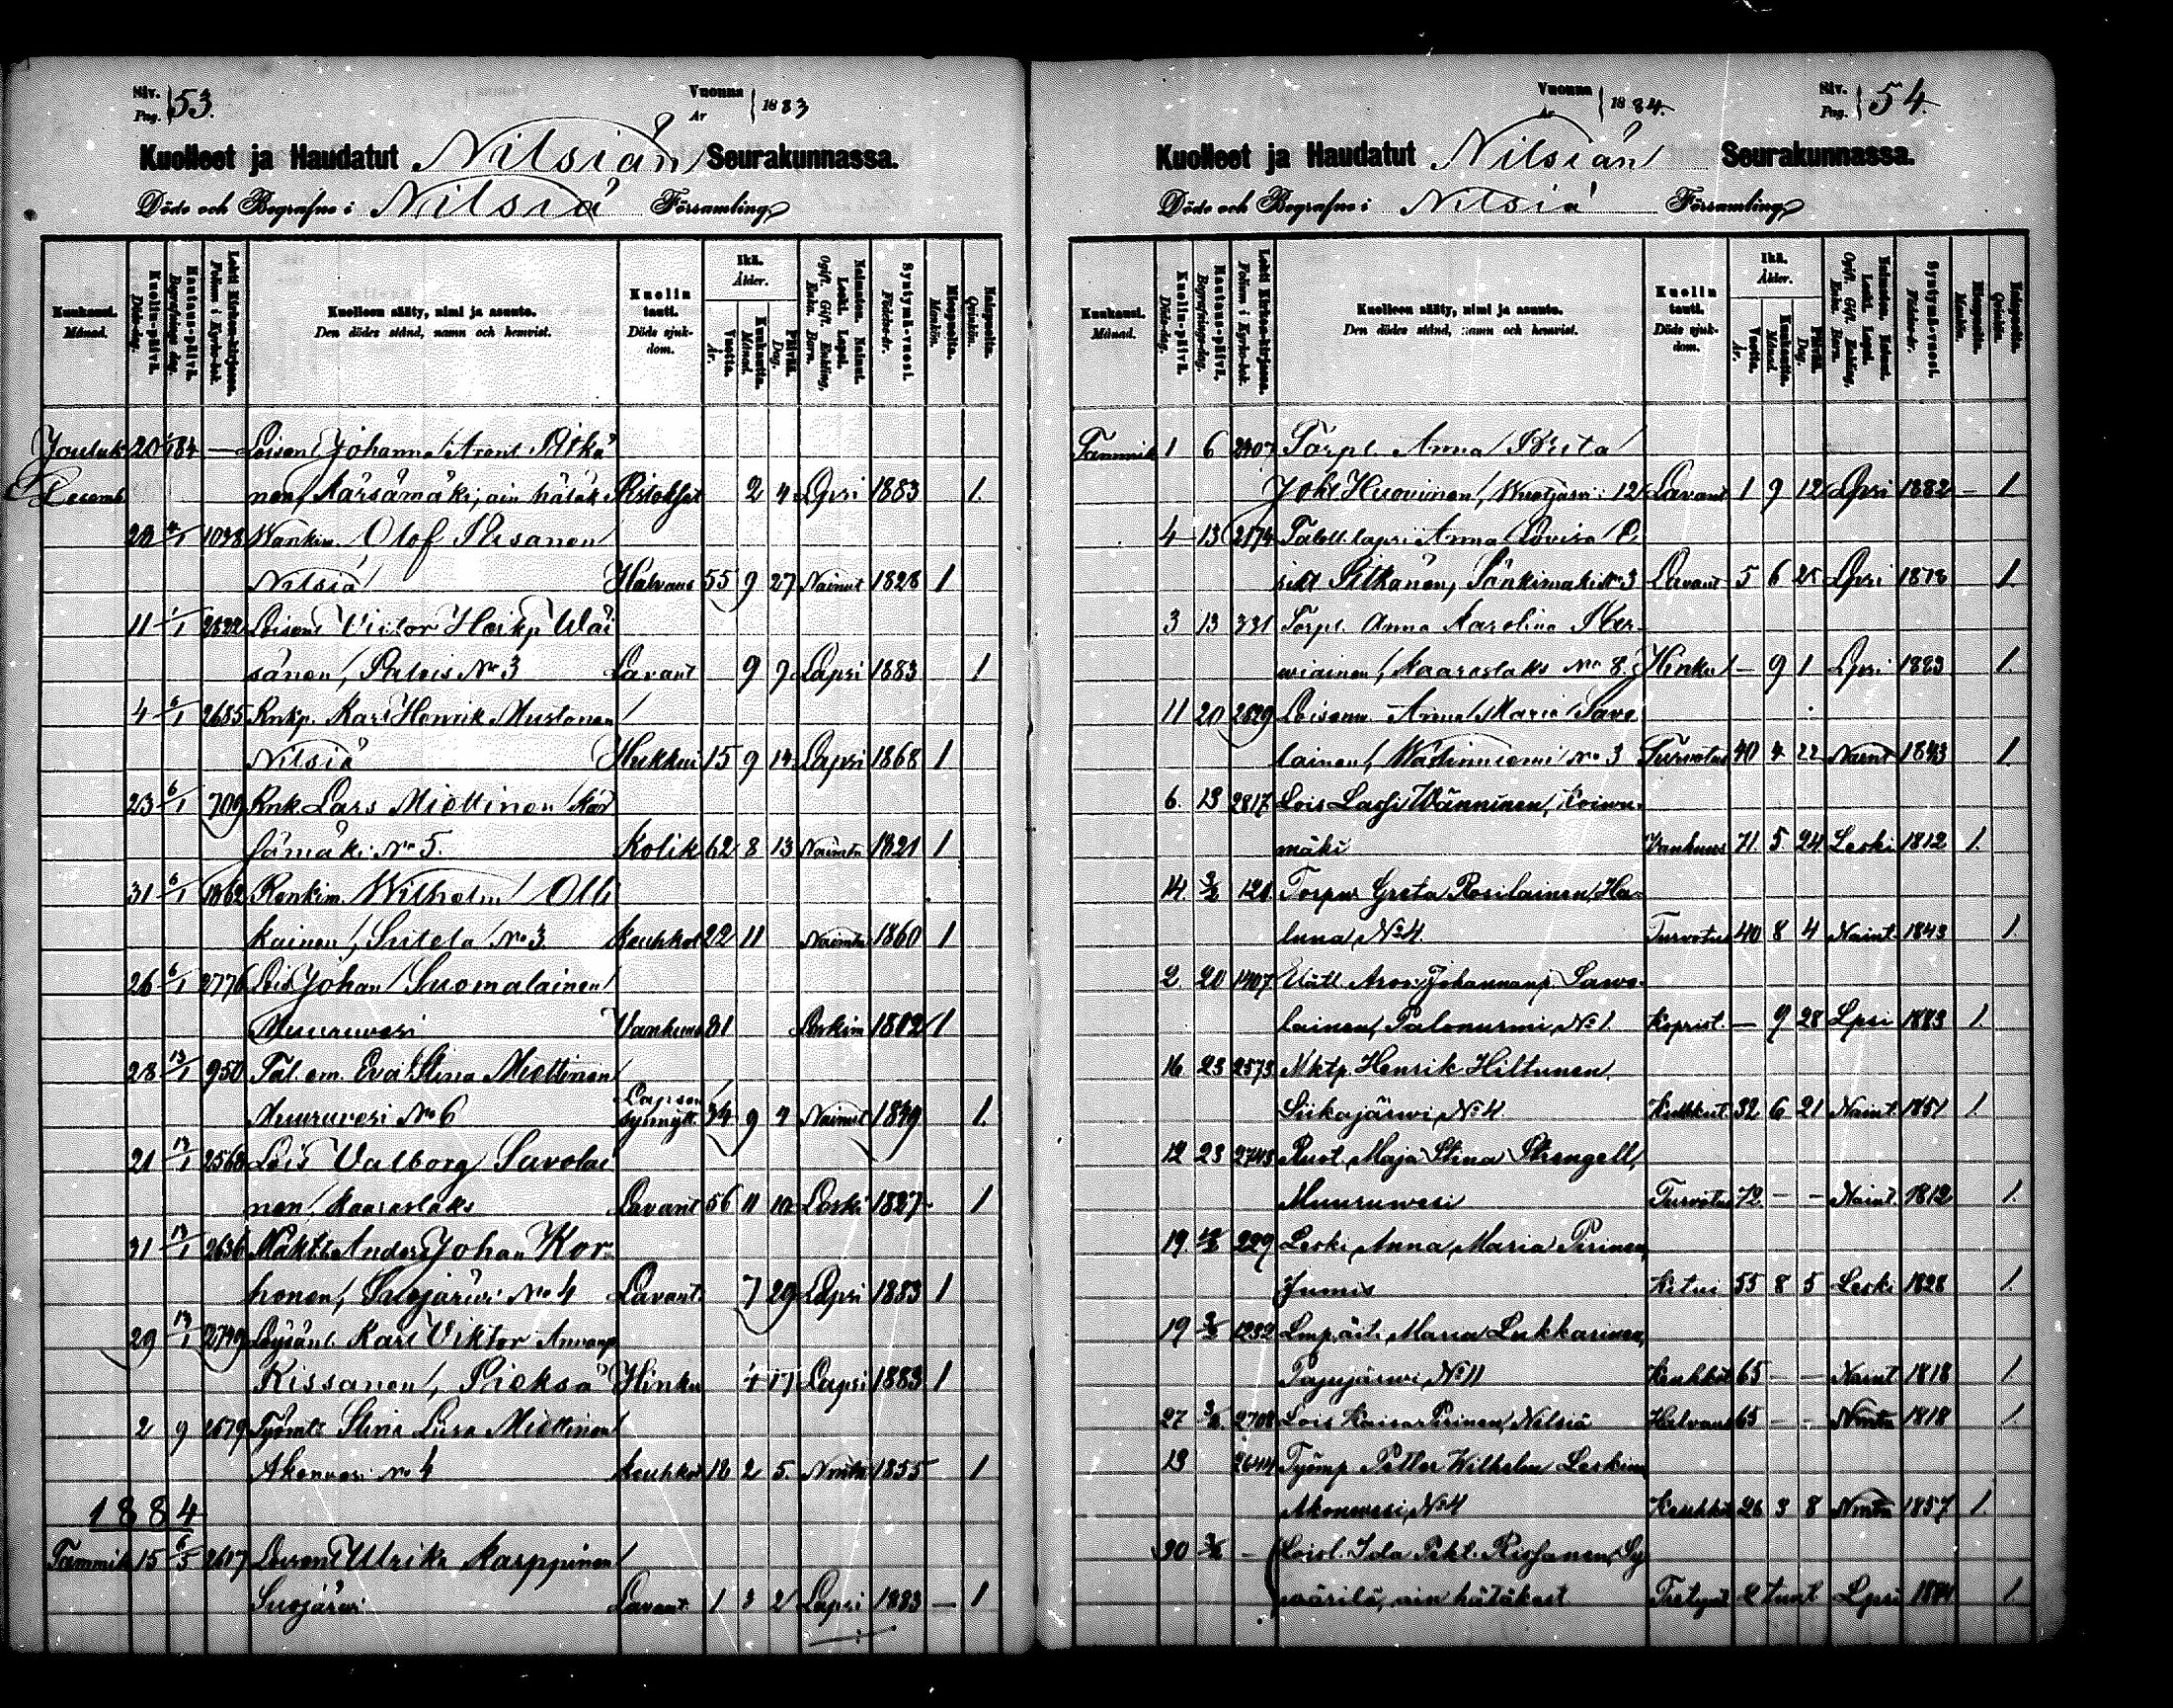 Siv. Pag. 53.
Vuonna År 1883
Kuolleet ja Haudatut Nilsiän Seurakunnassa.
Döde och Begrafne i Nilsiä Församling
Kuukausi. Månad.
Kuolin-päivä. Döds-dag.
Hautaus-päivä. Begrafnings-dag.
Lehti Kirkon-kirjassa. Folium i Kyrko-bok.
Kuolleen sääty, nimi ja asunto. Den dödes stånd, namn och hemvist.
Kuolin tauti. Döds sjukdom.
Ikä. Ålder.
Vuotta. År.
Kuukautta. Månad.
Päivää. Dag.
Nainut. Leski. Lapsi. Ogift. Gift. Enkling, Enka. Barn.
Syntymä-vuosi. Födelse-år.
Miespuolia. Mankön.
Naispuolia. Qvinkön.
Jouluk 20 1/84 — Loisenl Johanna
Decemb nen, Kärsämäki, ain hätäk 2 4 Lpsi 1883 1.
20 1098 Olof Pisanen
Nilsiä Halvaus 55 9 27 Nainut 1828 1
11 1/1 2822 Victor Heikp Wäi
sänen, Palois No 3 Lavant 9 9 Lapsi 1883 1
4 6/1 2685 Rnkp. Karl Henrik Mustonen
Nilsiä Hukkui 15 9 14 Lapsi 1868 1
23 6/1 709 Rnk. Lars Miettinen
sämäki No 5. Kolik 62 8 13 1821 1
31 6/1 1862 Wilhelm Olli
kainen, Siitela No 3 Keuhkot 22 11 1860 1
26 6/1 2776 Lois Johan Suomalainen
Muuruvesi Vanhuus 81 1802 1
28 13/1 950 Tal. em. Eva Stina Miettinen
Muuruvesi No 6 Lapsen synnytt. 34 9 4 Nainut 1849 1.
21 13/1 2568 Lois Valborg Savolai
nen, Kaaraslaks Lavant 56 11 10 Leski 1827 1
31 13/1 2636 Anders Johan Kor
honen, Suojärwi No 4 Lavant. 7 29 Lapsi 1883 1
29 13/1 2749 Karl Viktor
Kissanen, Pieksä Hinku 4 17 Lapsi 1883 1
2 9 1679 Stina Lisa Miettinen
Akonvesi No 4 Keuhkot 2 5. 1855 1
1884
Tammik 15 6/5 2617 Ulrika Karppinen
Suojärwi Lavant. 1 3 2 Lapsi 1883 — 1
Vuonna År 1884.
Siv. Pag. 54.
Kuolleet ja Haudatut Nilsiän Seurakunnassa.
Döde och Begrafne i Nilsiä Församling
Kuukausi. Månad.
Kuolin-päivä. Döds-dag.
Hautaus-päivä. Begrafnings-dag.
Lehti Kirkon-kirjassa. Folium i Kyrko-bok.
Kuolleen sääty, nimi ja asunto. Den dödes stånd, namn och hemvist.
Kuolin tauti. Döds sjuk-dom.
Ikä. Ålder.
Vuotta. År.
Kuukautta. Månad.
Päivää. Dag.
Nainut. Leski. Lapsi. Ogift. Gift. Enkling, Enka. Barn.
Syntymä-vuosi. Födelse-år.
Miespuolia. Mankön.
Naispuolia. Qvinkön.
Tammik 1 6 2407 Torpl. Anna Brita
Joht Huovinen, Wuotjärvi 12 Lavant 1 9 12 Lpsi 1882 — 1.
4 13 2174 Anna Lovisa E
rikt Pitkänen, Pänkimäki No 3 Lavant 5 6 25 Lpsi 1878 1.
3 13 331 Torpl. Anna Karolina Kor
wiainen, Kaaraslaks No 8. Hinku — 9 1 Lpsi 1883 1.
11 20 2829 Loisenw. Anna Maria Savo
lainen, No 3 Turvotus 40 4 22 Naint 1843 1.
6. 13 2817 Lois Lassi Wänninen, Koiwu
mäki Vanhuus 71 5 24 Leski 1812 1.
14. 3/2 121. Greta Rosilainen, Ha-
luna, No 4. Turvotus 40 8 4 Naint. 1843 1.
2 20 1407 Johannanp. Sawo-
lainen, Palonurmi, No 1. — 9 28 Lpsi 1883 1.
16 23 2573 Nktp Henrik Hiltunen,
Siikajärwi, No 4. 32 6 21 Naint. 1851 1.
12 23 2743 Ruot. Maja Stina Strengell,
Muuruwesi Turvotus 72. — — Naint 1812 1.
19. 229 Leski, Anna, Maria Pirinen,
Jumis Kitui 55 8 5 Leski 1828 1.
19 1232 Maria Lukkarinen,
Pajujärwi, No 11 65 — — Naint 1818 1.
27 2708 Lois Kaisa Pirinen, Nilsiä Halvaus 65 — — 1818 1.
13 2644 Työmp Petter Wilhelm Leskinen
Akonwesi, No 4 26 3 8 1857 1.
30 — Loisl. Ida Pekl. Rissanen, Sy
wärilä, ain hätäkast. 2 tunt Lpsi 1884 1.